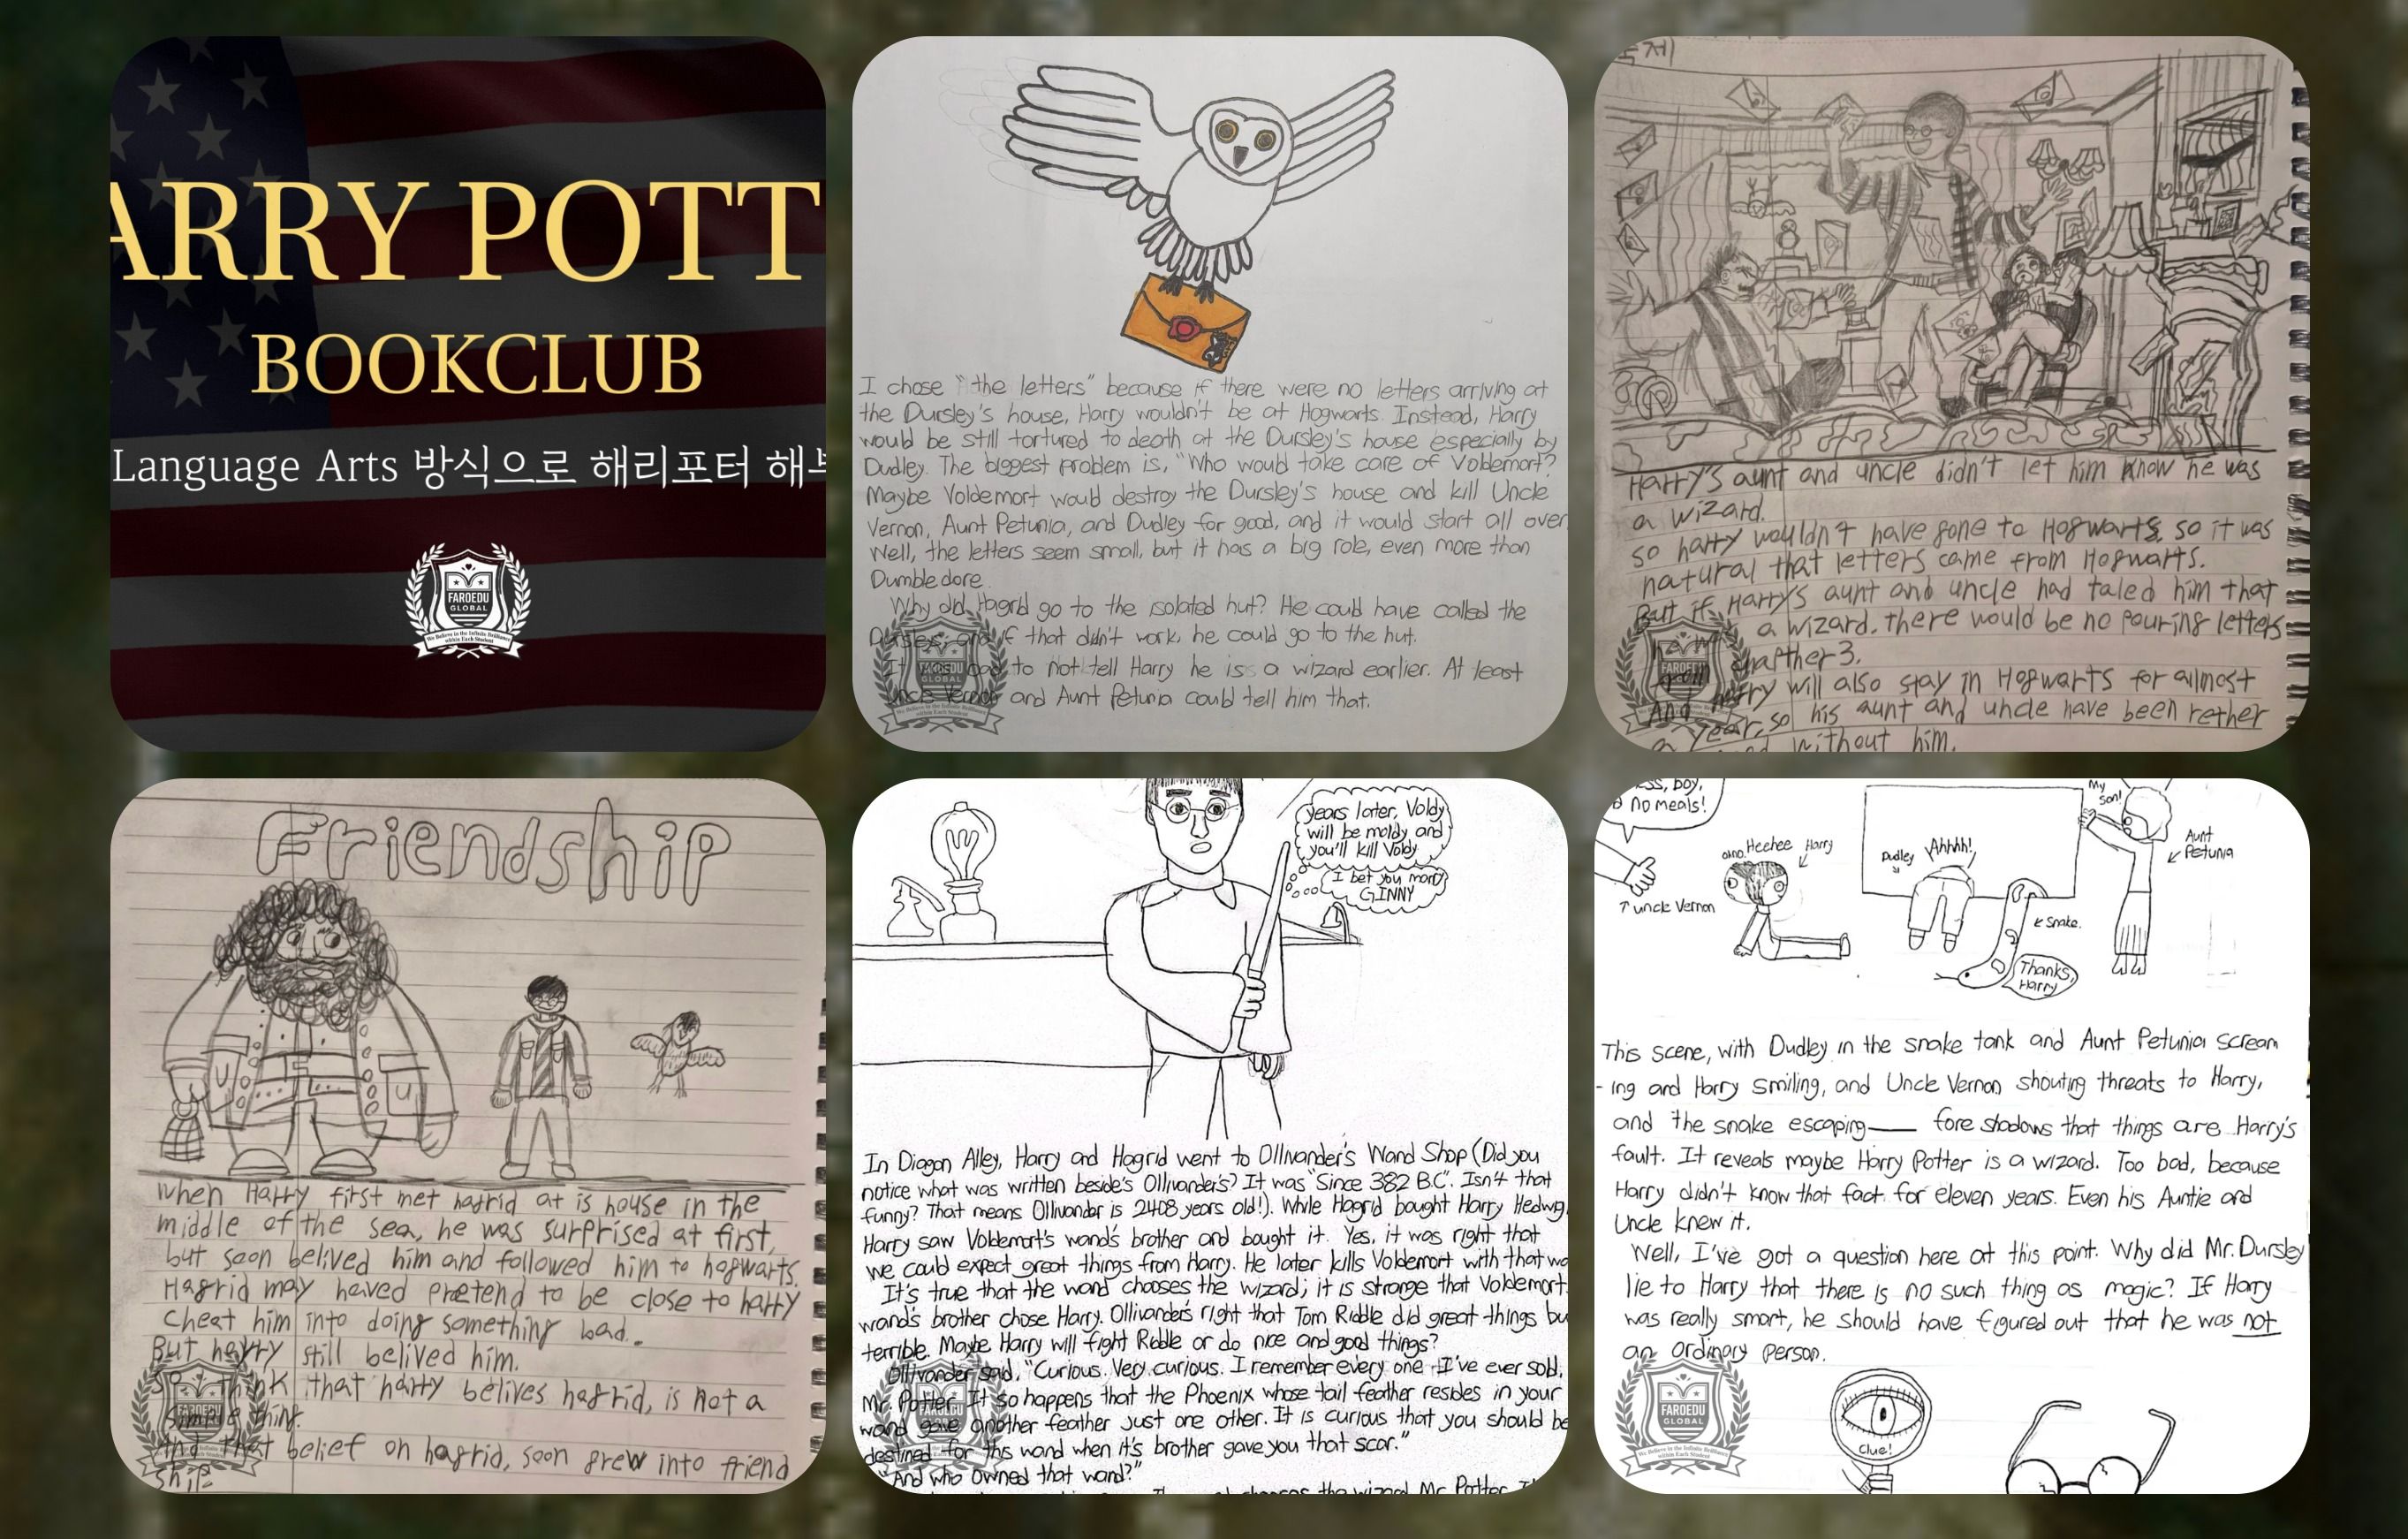 ARRY POTT
BOOKCLUB
Language Arts 방식으로 해리포터 해부
FAROEDU
GLOBAL
We Believe in the Infinite Brilliance
within Each Student
I chose "the letters" because if there were no letters arriving at
the Dursley's house, Harry wouldn't be at Hogwarts. Instead, Harry
would be still tortured to death at the Dursley's house especially by
Dudley. The biggest problem is, "Who would take care of Voldemort?
Maybe Voldemort would destroy the Dursley's house and kill Uncle
Vernon, Aunt Petunia, and Dudley for good, and it would start all over
Well, the letters seem small, but it has a big role, even more than
Dumbledore.
Why did Hagrid go to the isolated hut? He could have called the
Dursleys, and if that didn't work, he could go to the hut.
It was bad to not tell Harry he is a wizard earlier. At least
Uncle Vernon and Aunt Petunia could tell him that.
FAROEDU
GLOBAL
Harry's aunt and uncle didn't let him know he was
a wizard.
so harry wouldn't have gone to Hogwarts, so it was
natural that letters came from Hogwarts.
But if Harry's aunt and uncle had taled him that
he was a wizard. there would be no pouring letters
from chapther 3.
And harry will also stay in Hogwarts for allmost
a year, so his aunt and uncle have been rether
without him.
FAROEDU
GLOBAL
Friendship
when Harry first met hagrid at is house in the
middle of the sea, he was surprised at first,
but soon belived him and followed him to hogwarts.
Hagrid may haved pretend to be close to harry
cheat him into doing something bad.
But harry still belived him.
So I think that harry belives hagrid, is not a
simple thing.
And that belief on hagrid, soon grew into friend
ship
FAROEDU
GLOBAL
years later, Voldy
will be moldy and
you'll kill Voldy
I bet you marry
GINNY
In Diagon Alley, Harry and Hagrid went to Ollivander's Wand Shop (Did you
notice what was written beside's Ollivander's? It was "Since 382 B.C". Isn't that
funny? That means Ollivandar is 2408 years old!). While Hagrid bought Harry Hedwig,
Harry saw Voldemort's wand's brother and bought it. Yes, it was right that
we could expect great things from Harry. He later kills Voldemort with that wa
It's true that the wand chooses the wizard; it is strange that Voldemort
wand's brother chose Harry. Ollivander's right that Tom Riddle did great things bu
terrible. Maybe Harry will fight Riddle or do nice and good things?
Ollivander said, "Curious. Very curious. I remember every one I've ever sold,
Mr. Potter. It so happens that the Phoenix whose tail feather resides in your
wand gave another feather just one other. It is curious that you should be
destined for this wand when it's brother gave you that scar."
"And who owned that wand?"
chooses the wizard Mr. Potter. I
FAROEDU
GLOBAL
ss, boy,
no meals!
uncle Vernon
ohno.
Heehee
Harry
Dudley
Ahhhh!
My
son!
Aunt
Petunia
Snake.
Thanks,
Harry
This scene, with Dudley in the snake tank and Aunt Petunia scream
-ing and Harry smiling, and Uncle Vernon shouting threats to Harry,
and the snake escaping—— fore shadows that things are Harry's
fault. It reveals maybe Harry Potter is a wizard. Too bad, because
Harry didn't know that fact for eleven years. Even his Auntie and
Uncle knew it.
Well, I've got a question here at this point. Why did Mr. Dursley
lie to Harry that there is no such thing as magic? If Harry
was really smart, he should have figured out that he was not
an ordinary person.
Clue!
FAROEDU
GLOBAL
We Believe in the Infinite Brilliance
within Each Student